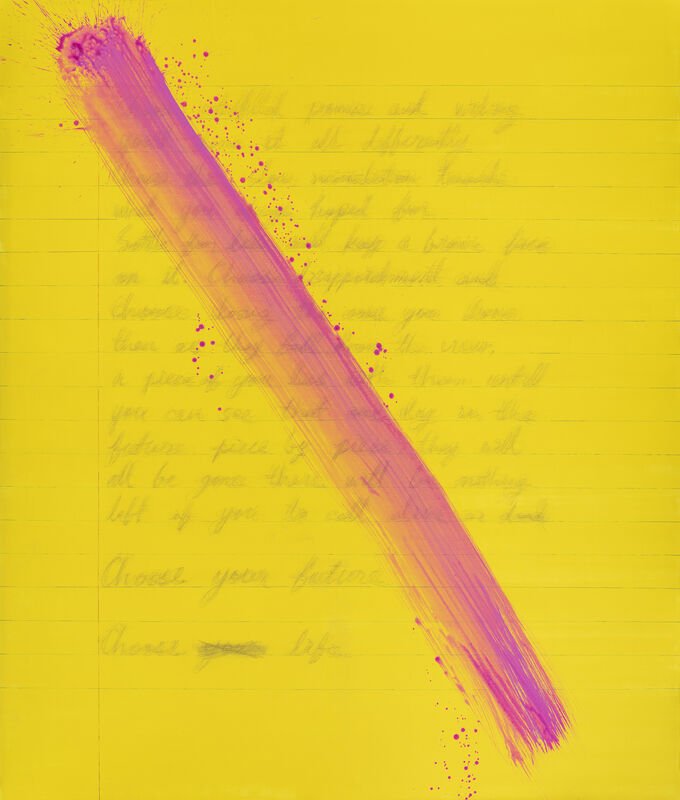 promise and wishing
it all differently
the slow reconciliation towards
what you hoped for
Settle for less and keep a brave face
on it Choose disappointment and
Choose losing the ones you love
then as they fall from the view,
a piece of you dies with them untill
you can see that one day in the
future piece by piece they will
all be gone there will be nothing
left of you to call alive or dead
Choose your future
Choose your life